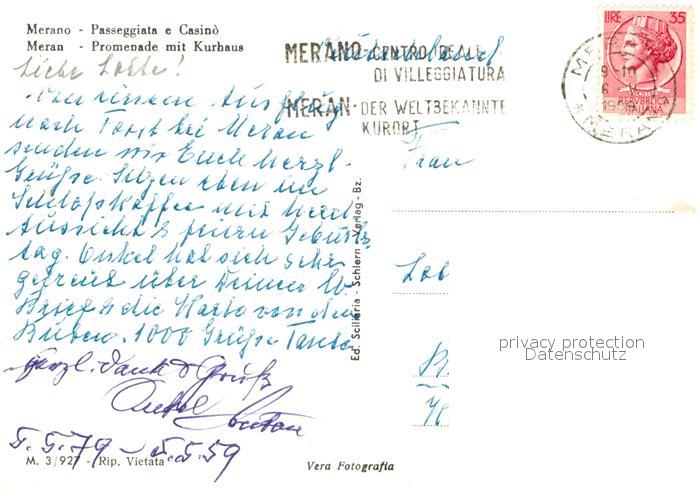 Merano - Passeggiata e Casinò
Meran - Promenade mit Kurhaus
MERANO - CENTRO IDEALE
DI VILLEGGIATURA
MERAN - DER WELTBEKANNTE
KURORT
LIRE 35
REPVBBLICA
ITALIANA
9-10
6. V
MERA
Liebe Lotte!
Von einem Ausflug
nach Forst bei Meran
senden wir Euch herzl.
Grüße. Sitzen eben im
Schloßkaffee mit
Aussicht & feiern Geburts
tag. Onkel hat sich sehr
gefreut über Deinen lb.
Brief & die Karte von den
Buben. 1000 Grüße Tante
Herzl. Dank & Gruß
Onkel Anton
5.5.79 - 5.5.59
Frau
Ed. Scilleria - Schlern Verlag - Bz.
privacy protection
Datenschutz
M. 3/927 - Rip. Vietata
Vera Fotografia